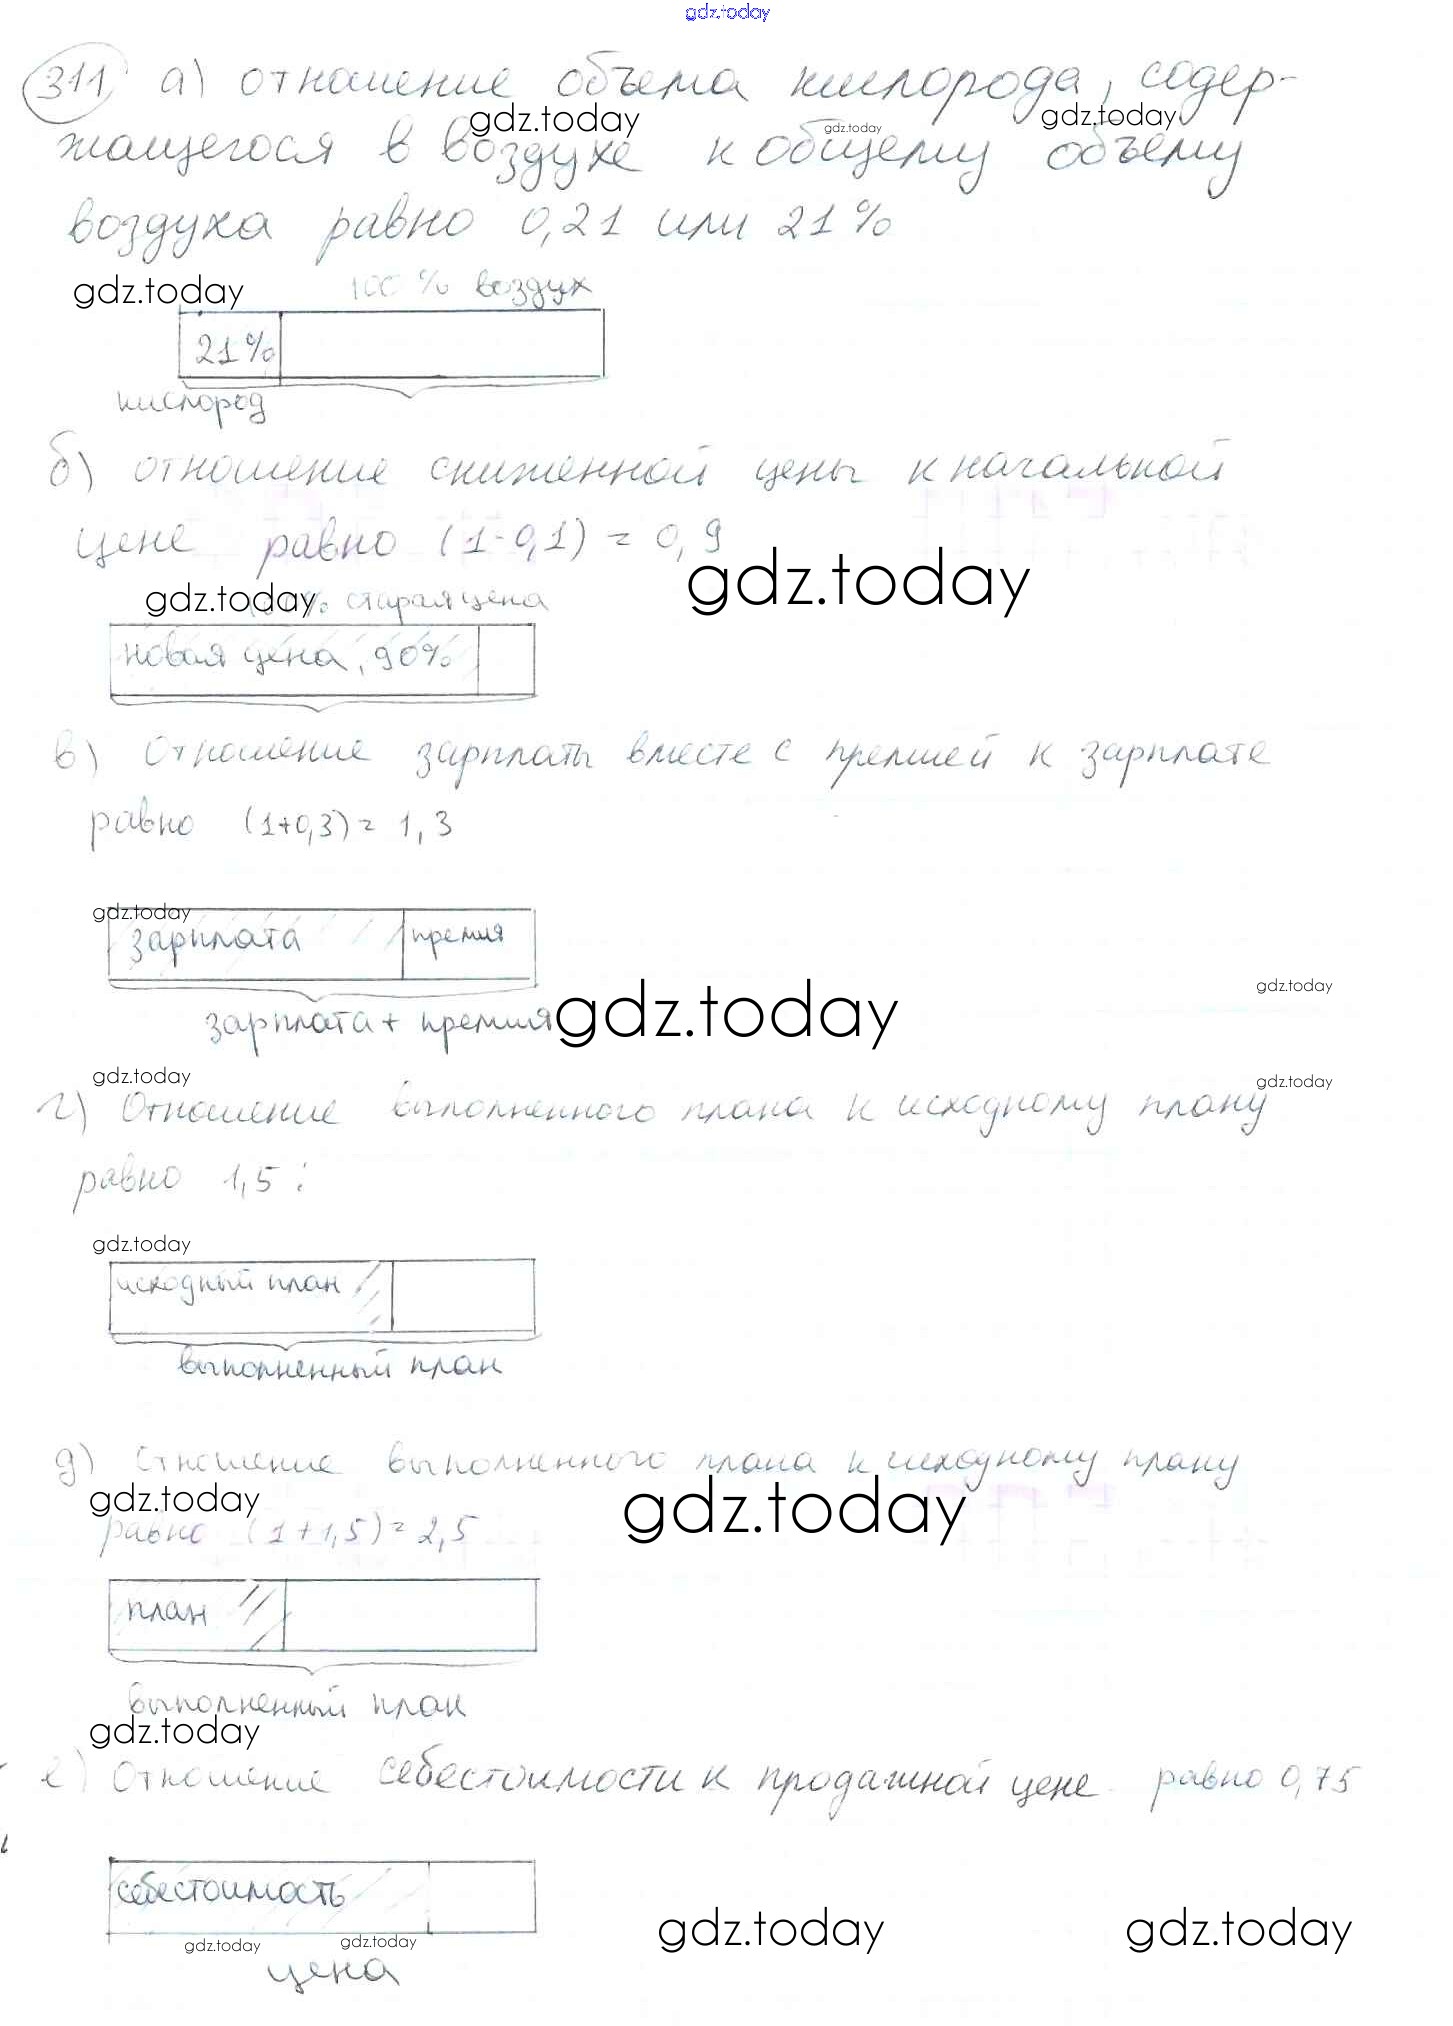 gdz.today
311 а) отношение объема кислорода, содер-
gdz.today gdz.today gdz.today
жащегося в воздухе к общему объему
воздуха равно 0,21 или 21%
gdz.today 100% воздух
21%
кислород
б) отношение сниженной цены к начальной
цене равно (1-0,1) = 0,9
gdz.today
gdz.today % старая цена
новая цена, 90%
в) Отношение зарплаты вместе с премией к зарплате
равно (1+0,3) = 1,3
gdz.today
зарплата премия
gdz.today
зарплата + премия gdz.today
gdz.today gdz.today
г) Отношение выполненного плана к исходному плану
равно 1,5:
gdz.today
исходный план
выполненный план
д) Отношение выполненного плана к исходному плану
gdz.today gdz.today
равно (1+1,5) = 2,5
план
выполненный план
gdz.today
е) Отношение себестоимости к продажной цене равно 0,75
себестоимость
gdz.today gdz.today gdz.today gdz.today
цена